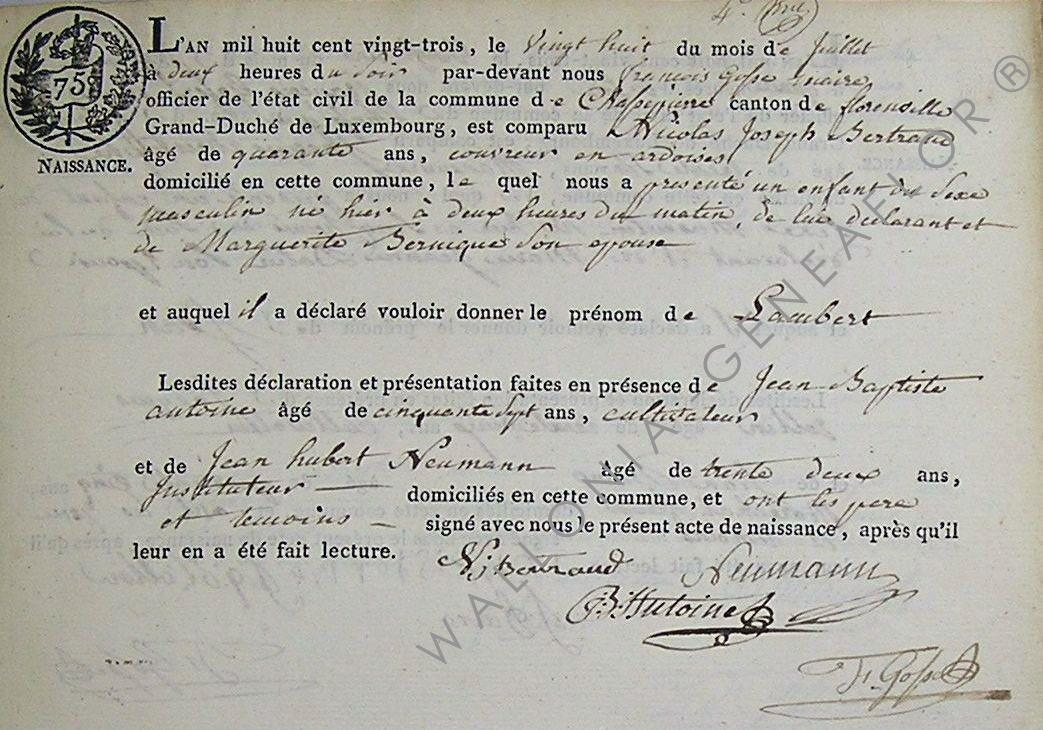 75
L'AN mil huit cent vingt-trois, le vingt huit du mois de juillet
à deux heures du soir par-devant nous françois Gosse maire
officier de l'état civil de la commune de Chassepierre canton de florenville
Grand-Duché de Luxembourg, est comparu Nicolas Joseph Bertrand
NAISSANCE.
âgé de quarante ans, couvreur en ardoises
domicilié en cette commune, le quel nous a presenté un enfant du Sexe
masculin né hier à deux heures du matin, de lui declarant et
de Marguerite Bernique Son epouse
et auquel il a déclaré vouloir donner le prénom de Lambert
Lesdites déclaration et présentation faites en présence de Jean-Baptiste
antoine âgé de cinquante Sept ans, cultivateur
et de Jean hubert Neumann âgé de trente deux ans,
Instituteur domiciliés en cette commune, et ont les pere
et temoins signé avec nous le présent acte de naissance, après qu'il
leur en a été fait lecture.
NJBertrand Neumann
JBAntoine
F Gosse
WALLONIA GENEALOR ®